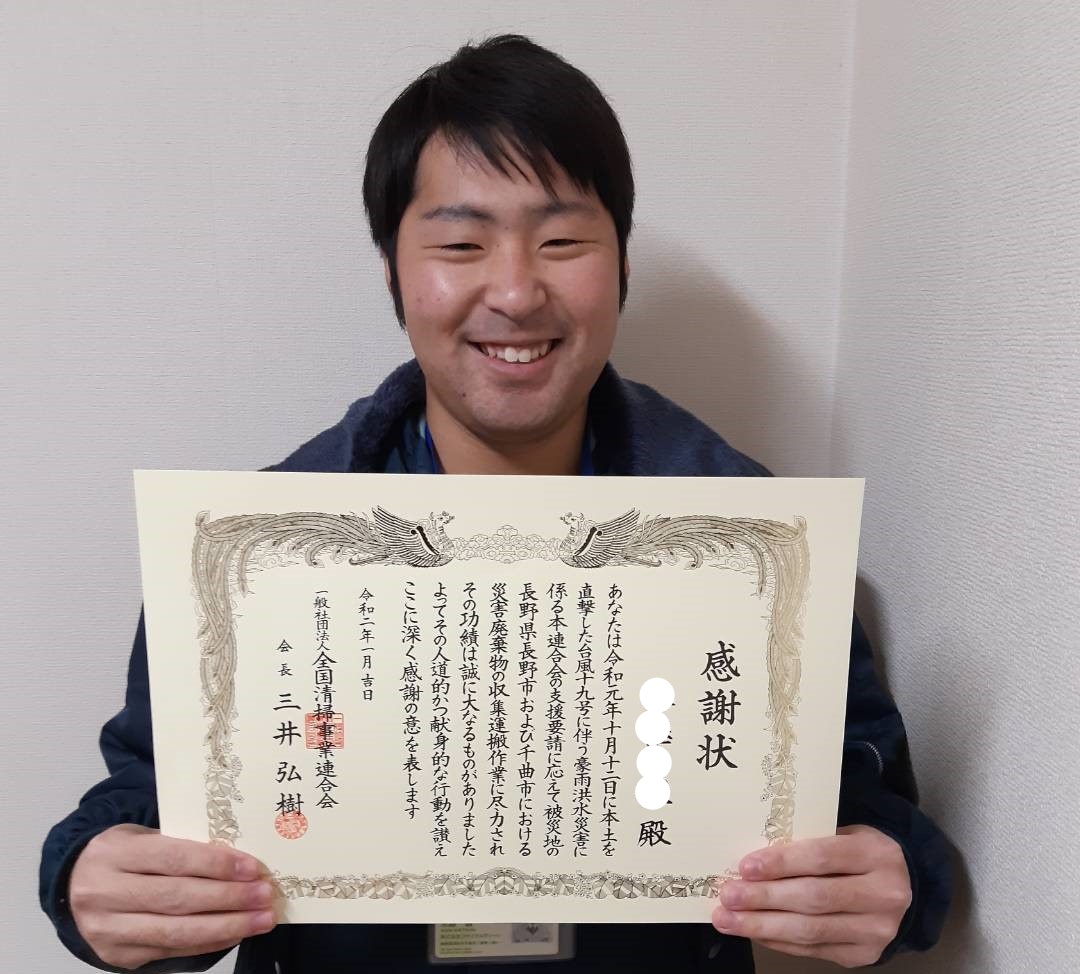 感謝状
殿
あなたは令和元年十月十二日に本土を
直撃した台風十九号に伴う豪雨洪水災害に
係る本連合会の支援要請に応えて被災地の
長野県長野市および千曲市における
災害廃棄物の収集運搬作業に尽力され
その功績は誠に大なるものがありました
よってその人道的かつ献身的な行動を讃え
ここに深く感謝の意を表します
令和二年一月吉日
一般社団法人全国清掃事業連合会
会長 三井弘樹